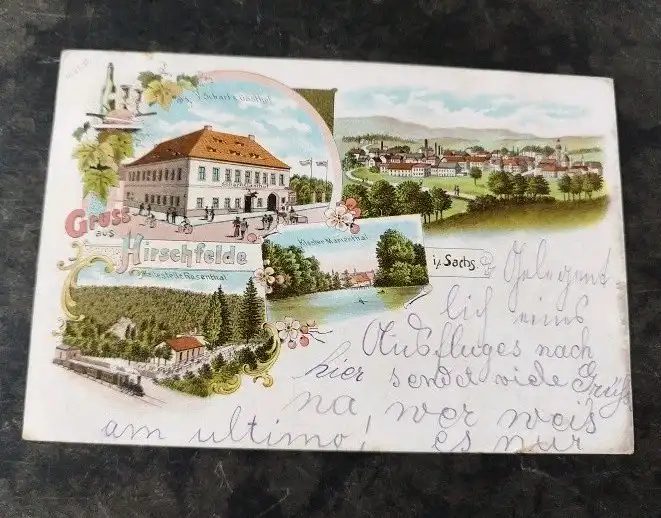 Scholz Gasthof
Gruss
aus
Hirschfelde
i./Sachs.
Kloster Marienthal
Haltestelle Rosenthal
Gelegent-
lich eines
Ausfluges nach
hier sendet viele Grüße
na, wer weis
am ultimo! es nur